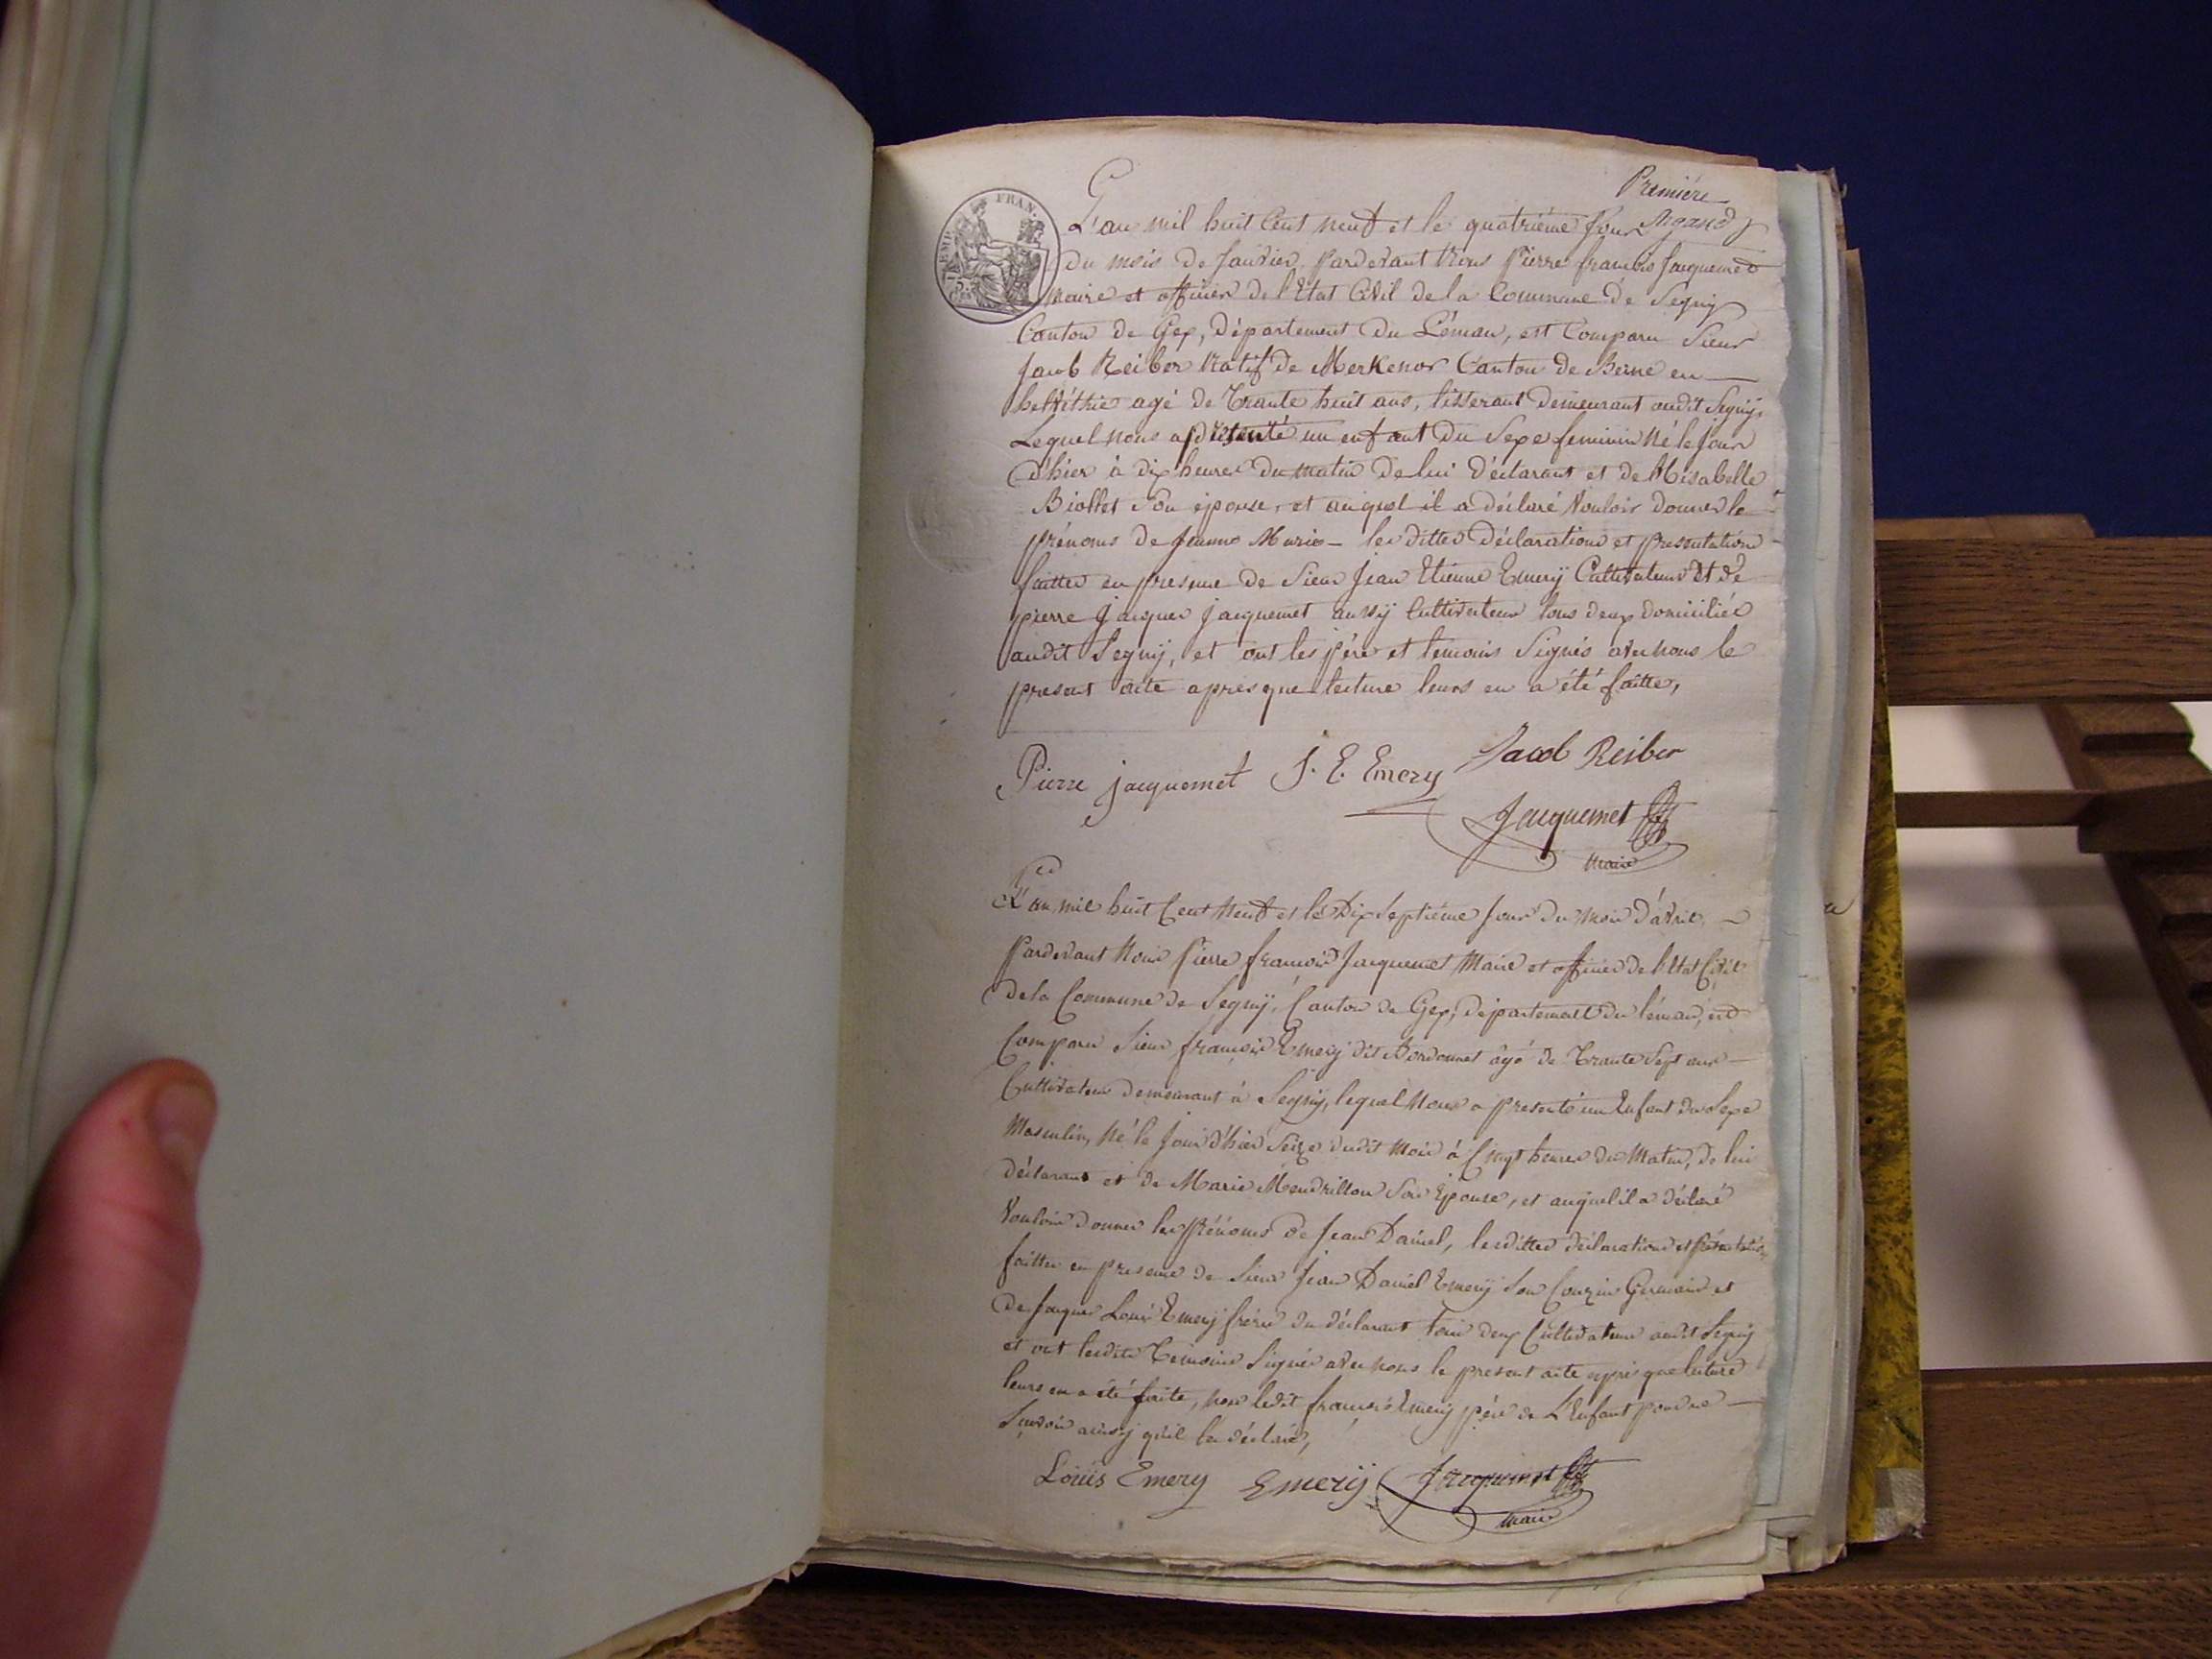 Première
L'an mil huit Cent neuf et le quatrième Jour
du mois de Janvier, pardevant Nous Pierre francois Jacquemet
Maire et officier de l'Etat Civil de la Commune de Segny
Canton de Gex, Département du Léman, est Comparu Sieur
Jacob Reiber Natif de Merkenor Canton de Berne en
helvéthie agé de Trante huit ans, tisserant demeurant audit Segny,
Lequel nous a présenté un enfant du Sexe feminin Né le Jour
d'hier à dix heures du matin de lui déclarant et de Elisabelle
Biollet Son épouse, et auquel il a déclaré Vouloir donner le
prénoms de Jeanne Marie les dittes déclarations et presentation
faittes en presence de Sieur Jean Etienne Emery Cultivateur et de
pierre Jacques Jacquemet aussy Cultivateur tous deux domiciliés
audit Segny, et ont les père et temoins Signés avec nous le
present acte après que lecture leurs en a été faitte,
Jacob Reiber
Pierre jacquemet J. E. Emery
Jacquemet
maire
L'an mil huit Cent Neuf et le Dix Septième Jour du Mois d'avril
Pardevant Nous Pierre francois Jacquemet Maire et officier de l'Etat Civil
de la Commune de Segny, Canton de Gex, département du léman, est
Comparu Sieur francois Emery dit Bordonnet âgé de Trante Sept ans
Cultivateur demeurant à Segny, lequel Nous a presenté un Enfant du Sexe
Masculin, Né le Jour d'hier Seize dudit Mois à Cinq heures du Matin, de lui
déclarant et de Marie Mendrillon Son Epouse, et auquel il a déclaré
Vouloir donner les prénoms de Jean Daniel, lesdittes déclarations et présentation
faittes en presence de Sieur Jean Daniel Emery Son Couzin Germain et
de Jacques Louis Emery frère du déclarant tous deux Cultivateurs audit Segny
et ont lesdits Temoins Signés avec nous le present acte après que lecture
leurs en a été faite, non ledit francois Emery père de L'Enfant pour ne
Savoir ainsy qu'il l'a déclaré,
Louis Emery Emery Jacquemet
maire